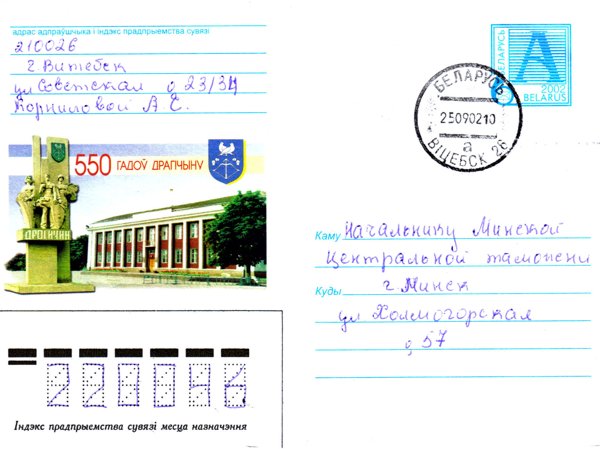 адрас адпраўшчыка і індэкс прадпрыемства сувязі
210026
г. Витебск
ул Советская д 23/34
Корниловой А С.
550 ГАДОЎ ДРАГІЧЫНУ
ДРОГІЧЫН
БЕЛАРУСЬ
A
2002
BELARUS
БЕЛАРУСЬ
25090210
а
ВІЦЕБСК 26
Каму Начальнику Минской
Центральной таможени
Куды г. Минск
ул Холмогорская
д, 57
220046
Індэкс прадпрыемства сувязі месца назначэння